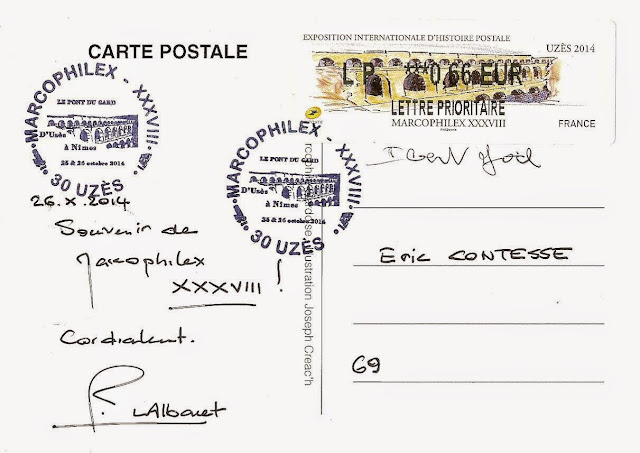 CARTE POSTALE
EXPOSITION INTERNATIONALE D'HISTOIRE POSTALE
UZÈS 2014
LP ***0,66 EUR
LETTRE PRIORITAIRE
MARCOPHILEX XXXVIII
FRANCE
MARCOPHILEX - XXXVIII
LE PONT DU GARD
D'Uzès
à Nimes
25 & 26 octobre 2014
30 UZÈS
MARCOPHILEX - XXXVIII
LE PONT DU GARD
D'Uzès
à Nimes
25 & 26 octobre 2014
30 UZÈS
26.X.2014
Souvenir de
Marcophilex
XXXVIII !
Cordialent.
Illustration Joseph Creac'h
Eric CONTESSE
69